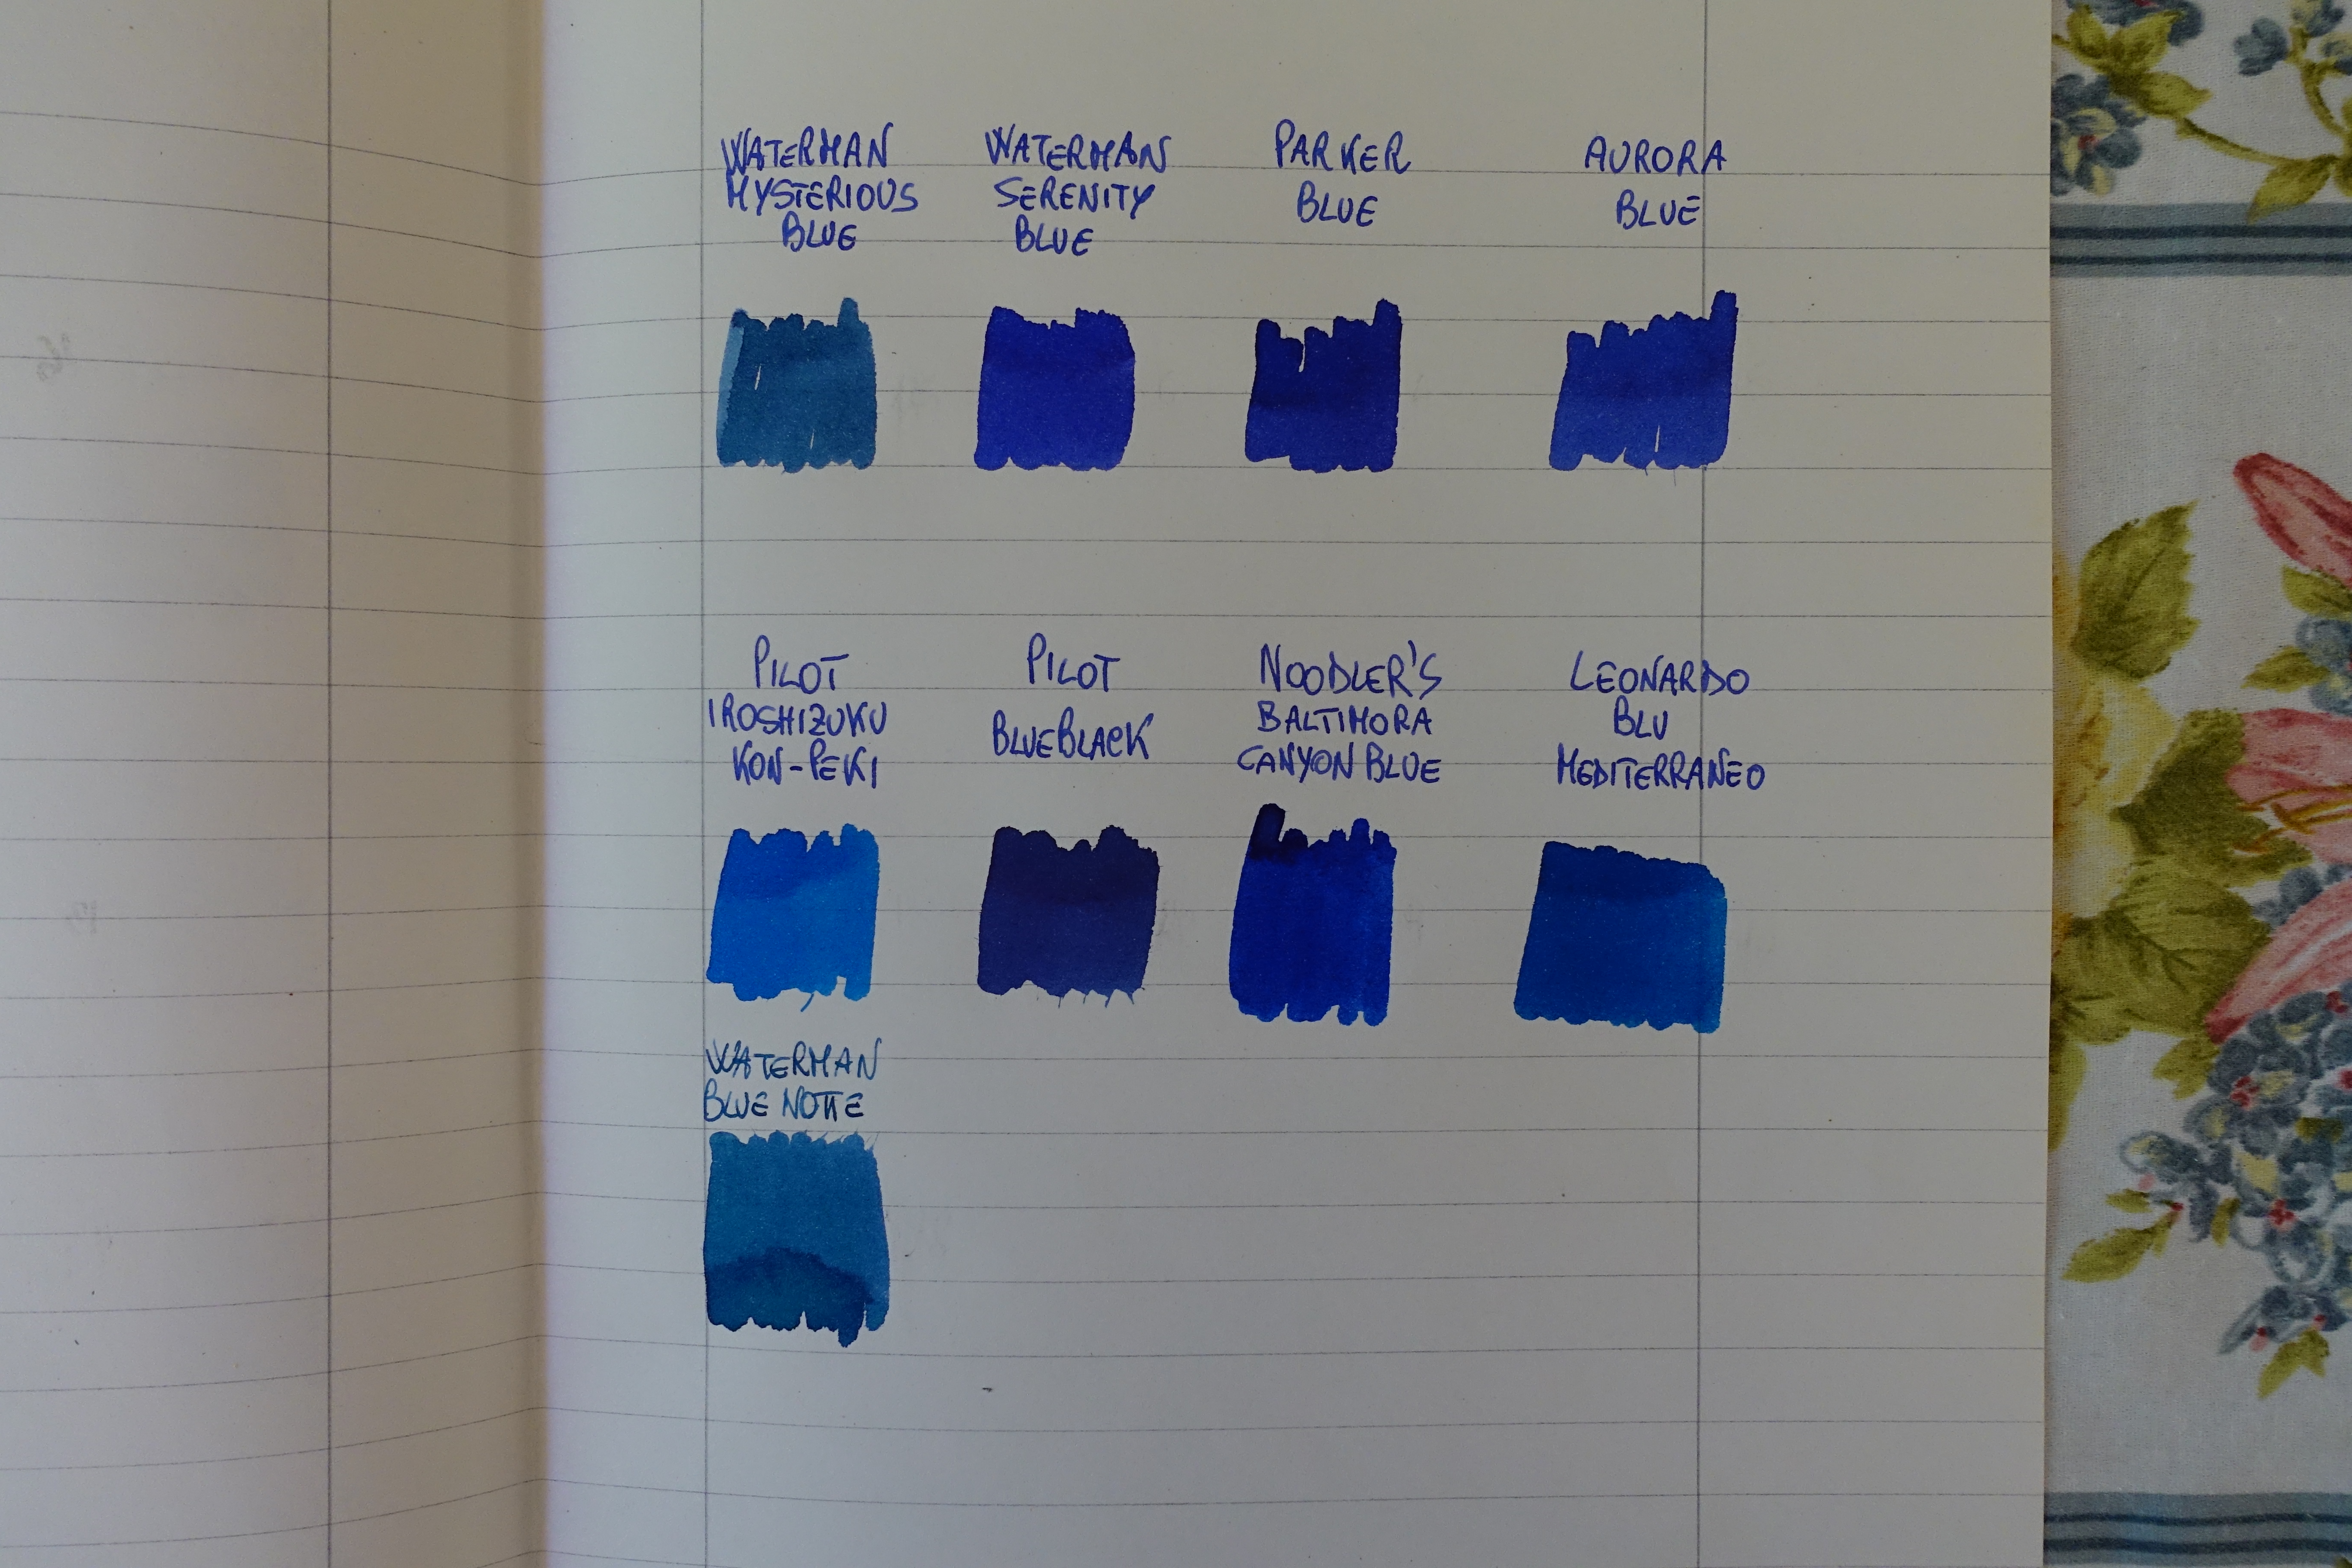 WATERMAN
MYSTERIOUS
BLUE
WATERMAN
SERENITY
BLUE
PARKER
BLUE
AURORA
BLUE
PILOT
IROSHIZUKU
KON-PEKI
PILOT
BLUEBLACK
NOODLER'S
BALTIMORA
CANYON BLUE
LEONARDO
BLU
MEDITERRANEO
WATERMAN
BLUE NOTTE